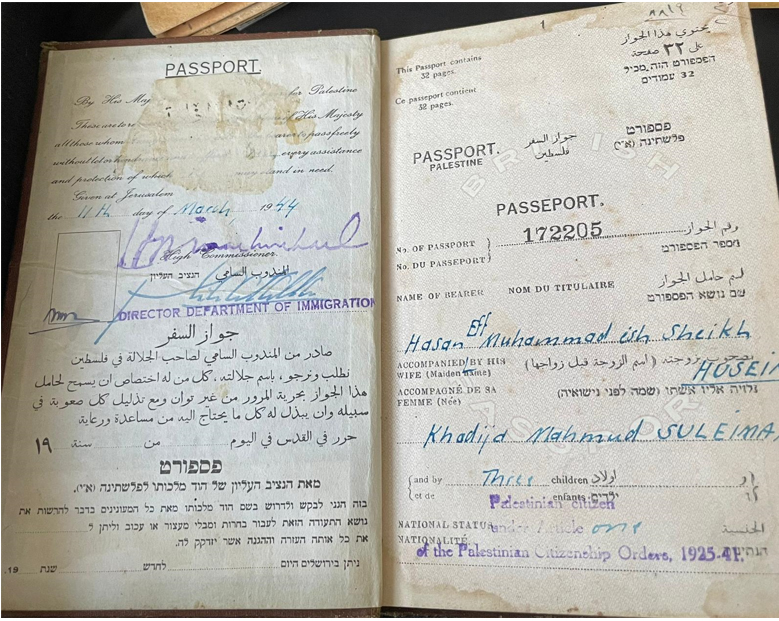 PASSPORT.
By His Maj for Palestine
These are to re His Majesty
all those whom to pass freely
without let or hind every assistance
and protection of which stand in need.
Given at Jerusalem
the 11th day of March 1944
High Commissioner.
المندوب السامي הנציב העליון
DIRECTOR DEPARTMENT OF IMMIGRATION
جواز السفر
صادر من المندوب السامي لصاحب الجلالة في فلسطين
نطلب ونرجو، باسم جلالته، كل من له اختصاص ان يسمح لحامل
هذا الجواز بحرية المرور من غير توان ومع تذليل كل صعوبة في
سبيله وان يبذل له كل ما يحتاج اليه من مساعدة ورعاية
حرر في القدس في اليوم من سنة ١٩
פספורט
מאת הנציב העליון של הוד מלכותו לפלשתינה (א"י).
בזה הנני לבקש ולדרוש בשם הוד מלכותו מאת כל המעונינים בדבר להרשות את
נושא התעודה הזאת לעבור בחרות ומבלי מעצור או עכוב וליתן ל
את כל אותה העזרה וההגנה אשר יזדקק לה.
ניתן בירושלים היום לחדש שנת 19.
1
This Passport contains
32 pages.
Ce passeport contient
32 pages.
يحتوي هذا الجواز
على ٣٢ صفحة
הפספורט הזה מכיל
32 עמודים
PASSPORT.
PALESTINE
جواز السفر
فلسطين
פספורט
פלשתינה (א"י)
BRITISH
PASSEPORT.
No. OF PASSPORT
No. DU PASSEPORT
172205
رقم الجواز
מספר הפספורט
NAME OF BEARER NOM DU TITULAIRE
اسم حامل الجواز
שם נושא הפספורט
Hasan Eff Muhammad ish Sheikh
HUSEI
ACCOMPANIED BY HIS
WIFE (Maiden name)
ACCOMPAGNÉ DE SA
FEMME (Née)
زوجته (اسم الزوجة قبل زواجها)
נלויה אליו אשתו (שמה לפני נישואיה)
PASSPORT
Khadija Mahmud SULEIMA
and by Three children اولاد
et de enfants ילדים
Palestinian citizen
NATIONAL STATUS under Article one الجنسية
NATIONALITÉ
of the Palestinian Citizenship Orders, 1925-41.